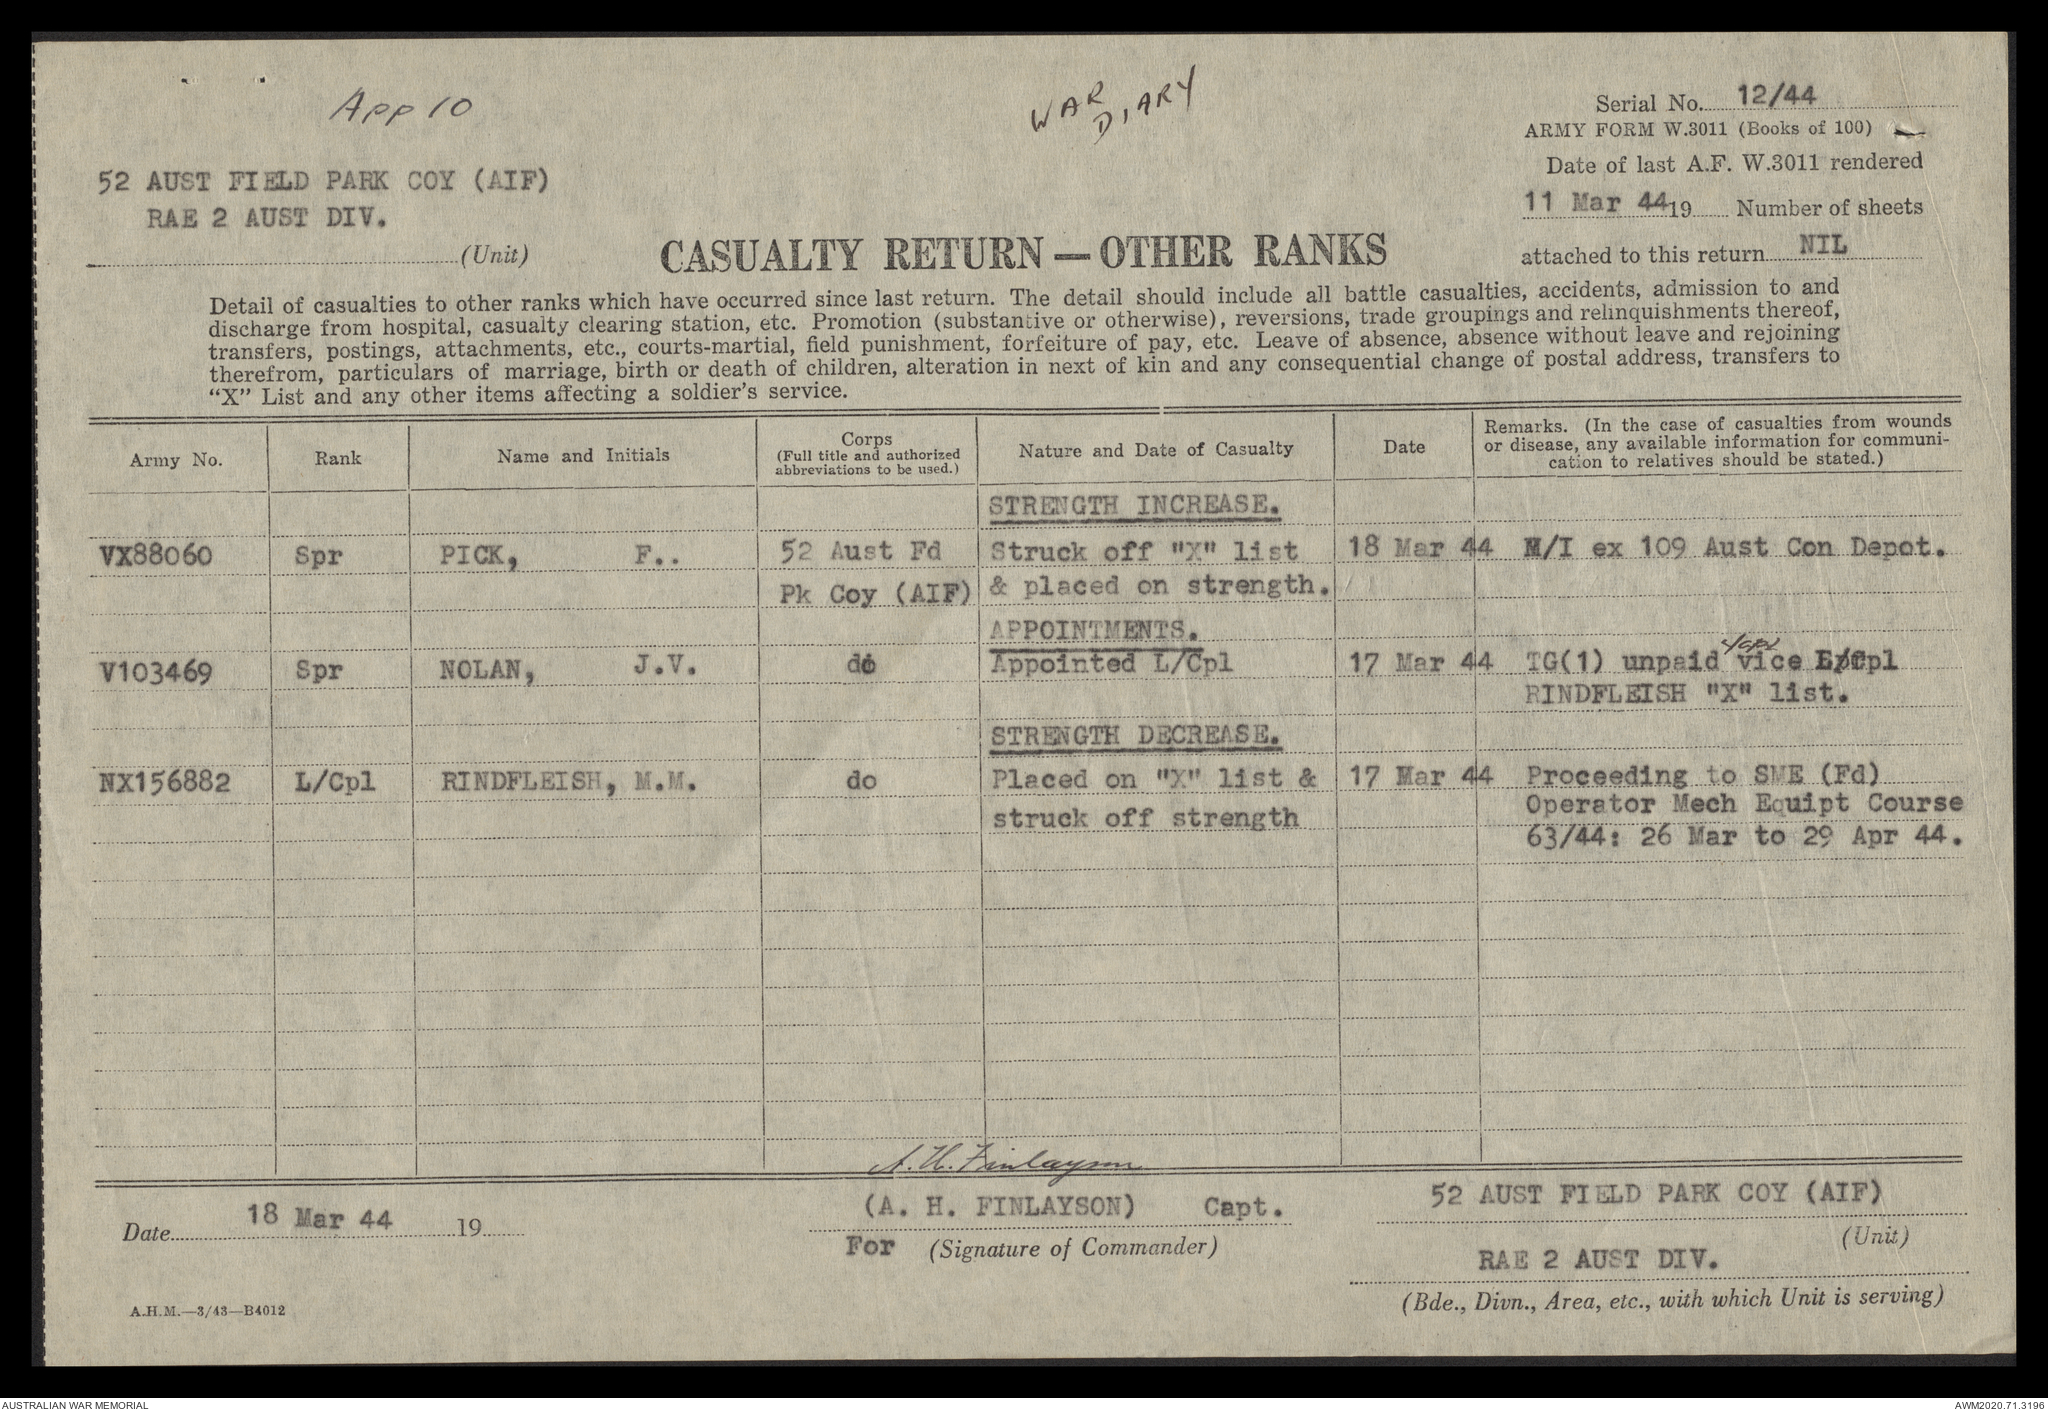 App 10
WAR
DIARY
Serial No. 12/44
ARMY FORM W.3011 (Books of 100)
Date of last A.F. W.3011 rendered
11 Mar 44 19 Number of sheets
attached to this return NIL
52 AUST FIELD PARK COY (AIF)
RAE 2 AUST DIV.
(Unit)
CASUALTY RETURN — OTHER RANKS
Detail of casualties to other ranks which have occurred since last return. The detail should include all battle casualties, accidents, admission to and
discharge from hospital, casualty clearing station, etc. Promotion (substantive or otherwise), reversions, trade groupings and relinquishments thereof,
transfers, postings, attachments, etc., courts-martial, field punishment, forfeiture of pay, etc. Leave of absence, absence without leave and rejoining
therefrom, particulars of marriage, birth or death of children, alteration in next of kin and any consequential change of postal address, transfers to
"X" List and any other items affecting a soldier's service.
Army No. Rank Name and Initials Corps (Full title and authorized abbreviations to be used.) Nature and Date of Casualty Date Remarks. (In the case of casualties from wounds or disease, any available information for communi- cation to relatives should be stated.)
STRENGTH INCREASE.
VX88060 Spr PICK, F.. 52 Aust Fd Struck off "X" list 18 Mar 44 M/I ex 109 Aust Con Depot.
Pk Coy (AIF) & placed on strength.
APPOINTMENTS.
V103469 Spr NOLAN, J.V. do Appointed L/Cpl 17 Mar 44 TG(1) unpaid vice L/Cpl
RINDFLEISH "X" list.
STRENGTH DECREASE.
NX156882 L/Cpl RINDFLEISH, M.M. do Placed on "X" list & 17 Mar 44 Proceeding to SME (Fd)
struck off strength Operator Mech Equipt Course
63/44: 26 Mar to 29 Apr 44.
A. H. Finlayson
Date 18 Mar 44 19
(A. H. FINLAYSON) Capt.
For (Signature of Commander)
52 AUST FIELD PARK COY (AIF)
(Unit)
RAE 2 AUST DIV.
(Bde., Divn., Area, etc., with which Unit is serving)
A.H.M.—3/43—B4012
AUSTRALIAN WAR MEMORIAL
AWM2020.71.3196